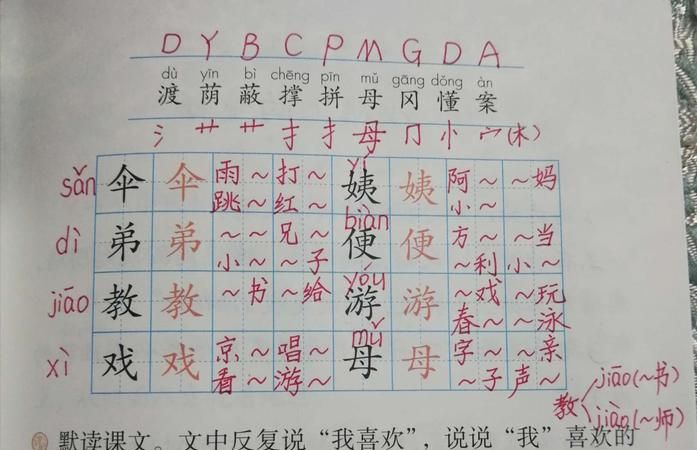 D Y B C P M G D A
dù yīn bì chēng pīn mǔ gāng dǒng àn
渡 荫 蔽 撑 拼 母 冈 懂 案
氵 艹 艹 扌 扌 母 冂 忄 宀(木)
sǎn 伞 伞 雨～ 打～ yí 姨 姨 阿～ ～妈
跳～ 红～ 小～
dì 弟 弟 ～～ 兄～ biàn 便 便 方～ ～当
小～ ～子 ～利 小～
jiāo 教 教 ～书 ～给 yóu 游 游 ～戏 ～玩
春～ ～泳
xì 戏 戏 京～ 唱～ mǔ 母 母 字～ ～亲
看～ 游～ ～子 声～
教 jiāo(～书)
jiào(～师)
默读课文。文中反复说“我喜欢”，说说“我”喜欢的